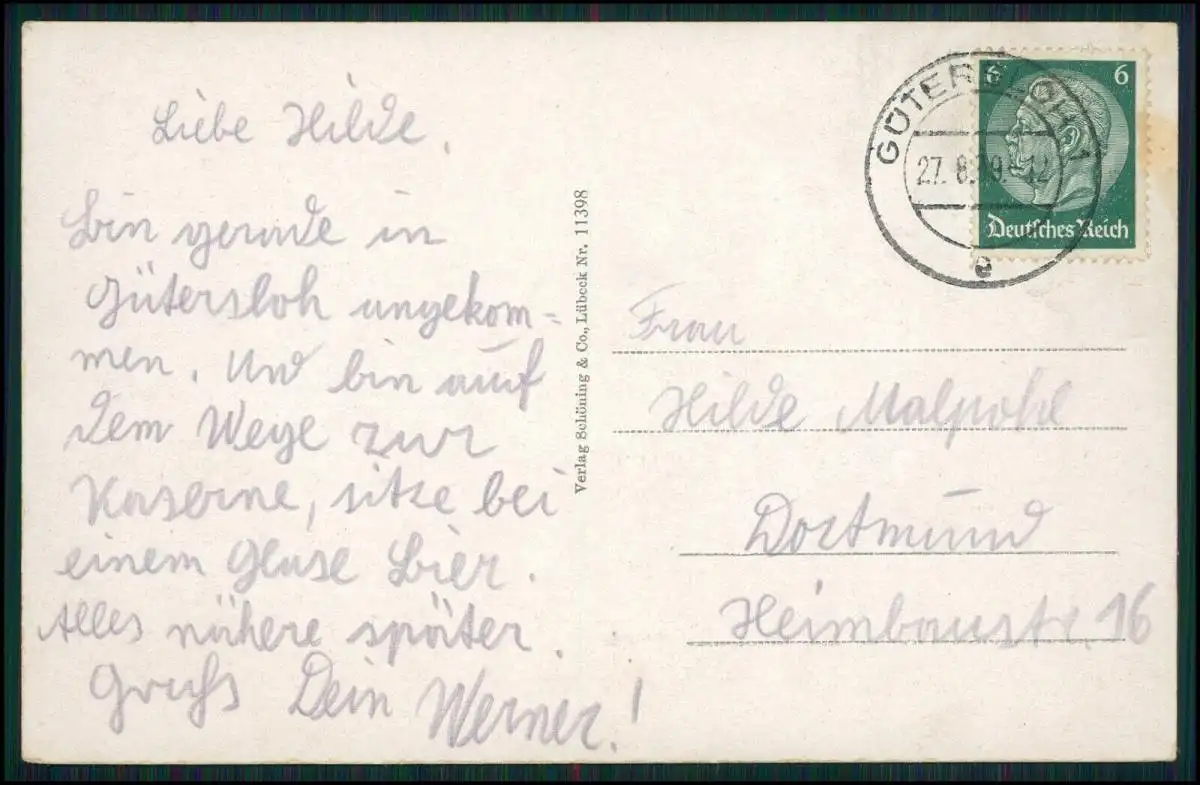 Liebe Hilde.
Bin gerade in
Gütersloh angekom=
men. Und bin auf
dem Wege zur
Kaserne, sitze bei
einem Glase Bier.
Alles nähere später.
Gruß Dein Werner!
Verlag Schöning & Co., Lübeck Nr. 11398
GÜTERSLOH 1
27.8.39.-12
e
6 6
Deutsches Reich
Frau
Hilde Malpohl
Dortmund
Heimbaustr. 16